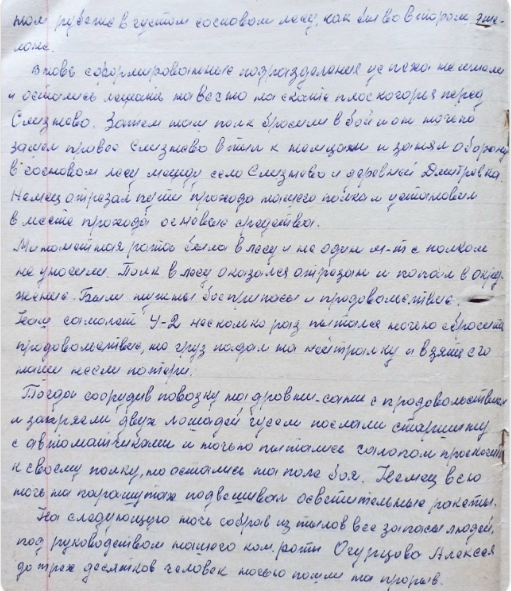 том рубеже в густом сосновом лесу, как бы во втором эше-
лоне.
Вновь сформированные подразделения успеха не имели
и остались лежать на вестно на скате плоскогорья перед
Слизнево. Затем наш полк бросили в бой и он ночью
зашел правее Слизнево в тыл к немцам и занял оборону
в сосновом лесу между село Слизнево и деревней Дмитровка.
Немец отрезал пути прохода нашего полка и установил
в месте прохода основные средства.
Минометная рота была в лесу и не один м-т с полком
не уносили. Полк в лесу оказался отрезан и попал в окру-
жение. Были нужны боеприпасы и продовольствие.
Наш самолет У-2 несколько раз пытался ночью сбросить
продовольствие, но груз падал на нейтралку и взять его
наши несли потери.
Тогда соорудив повозку на дровни-сани с продовольствием
и запрягли двух лошадей гусем послали старшину
с автоматчиками и ночью пытались галопом проскочить
к своему полку, но остались на поле боя. Немец всю
ночь на парашутах подвешивал осветительные ракеты.
На следующую ночь собрав из тылов все запасы людей,
под руководством нашего ком. роты Огурцова Алексея
до трех десятков человек ночью пошли на прорыв.